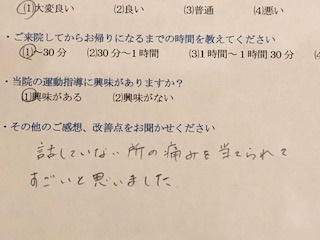 (1)大変良い (2)良い (3)普通 (4)悪い
・ご来院してからお帰りになるまでの時間を教えてください
(1)～30分 (2)30分～1時間 (3)1時間～1時間30分 (4
・当院の運動指導に興味がありますか?
(1)興味がある (2)興味がない
・その他のご感想、改善点をお聞かせください
話していない所の痛みを当てられて
すごいと思いました